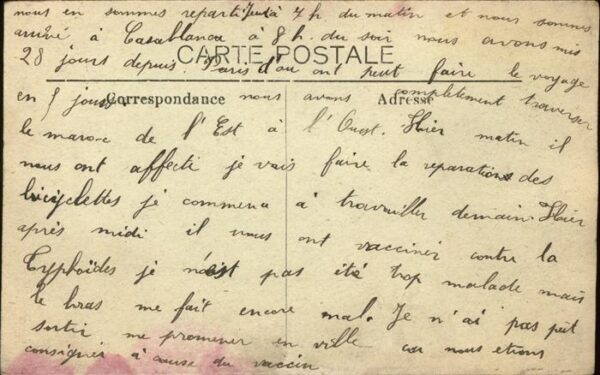 nous en sommes reparti Jeudi à 4 h. du matin et nous sommes
arrivé à Casablanca à 8 h. du soir nous avons mis
CARTE POSTALE
28 jours depuis Paris d'ou ont peut faire le voyage
en 5 jours nous avons completement traverser
Correspondance Adresse
le maroc de l'Est à l'Ouest. Hier matin il
nous ont affecti je vais faire la reparations des
bicyclettes je commence à travailler demain. Hier
après midi il nous ont vacciner contre la
Typhoïdes je n'est pas été trop malade mais
le bras me fait encore mal. Je n'ai pas put
sortir me promener en ville car nous etions
consigner à cause du vaccin